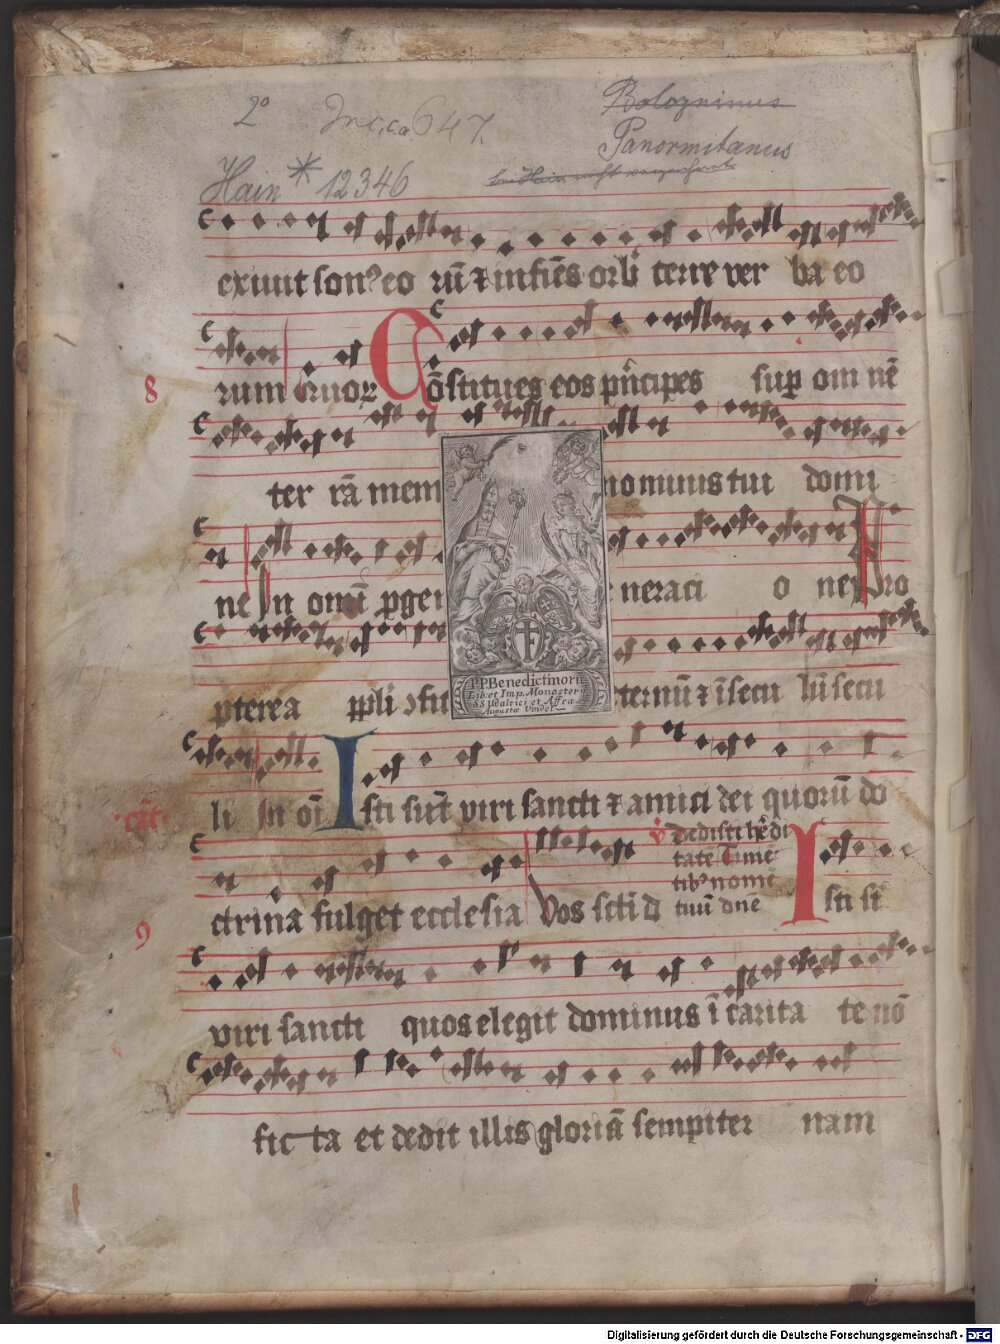 2° Inc. c. a. 647
Bologninus
Panormitanus
Hain * 12346
bei Hain nicht verzeichnet
exiunt sonꝰ eo rū ⁊ in fiēs orbꝭ terre ver ba eo
8
rum
Cōstitues eos pͥncipes sup om nē
ter rā mem nominis tui domi
ne In omī ꝓgei neraci o ne Pro
pterea ppli ɔfit ternū ⁊ ī secu lū secu
li In oī Isti sūt viri sancti ⁊ amici dei quorū do
ctrina fulget ecclesia Vos scti d
v Dedisti hēdi
tatē Timē
tibꝰ nomē
tuū dne
Isti st
9
viri sancti quos elegit dominus ī carita te nō
fic ta et dedit illis gloriā sempiter nam
P.P. Benedictinorū
Lib. et Imp. Monasterÿ
SS. Udalrici et Affræ
Augustæ Vindel.
Digitalisierung gefördert durch die Deutsche Forschungsgemeinschaft - DFG